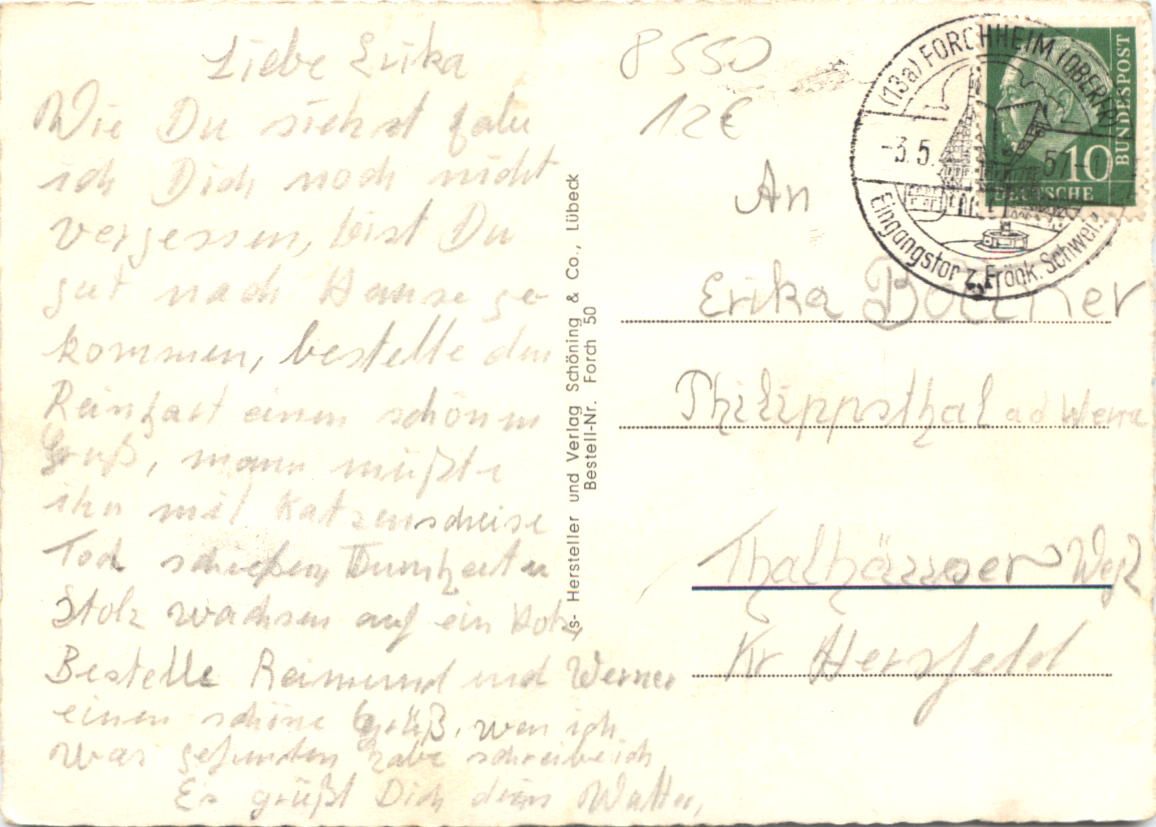 Liebe Erika
Wie Du siehst habe
ich Dich noch nicht
vergessen, bist Du
gut nach Hause ge
kommen, bestelle den
einen schönen
Gruß, mann müßte
ihn mit Katzenscheise
Tod schießen, Dummheit u
Stolz wachsen auf ein Holz,
Bestelle Reimund und Werner
einen schöne Grüß, wen ich
was gefunden habe schreibe ich
Es grüßt Dich dein Walter,
s- Hersteller und Verlag Schöning & Co., Lübeck
Bestell-Nr. Forch 50
8550
12€
(13a) FORCHHEIM (OBERFR)
-3.5. 57-1
Eingangstor z. Fränk. Schweiz
DEUTSCHE
BUNDESPOST
10
An
Erika
Philippsthal ad Werra
Thalhäusser Weg 2
Kr Hersfeld